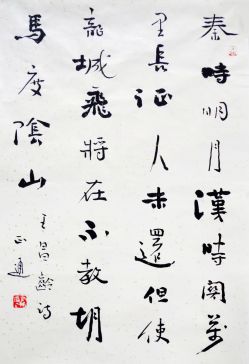 秦時明月漢時関萬
里長征人未還但使
龍城飛將在不教胡
馬度陰山
王昌齡詩
正通